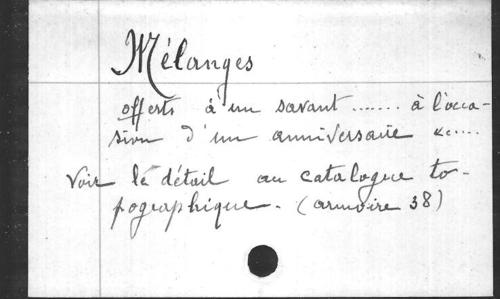 Mélanges
offerts à un savant ....... à l'occa-
sion d'un anniversaire &c....
Voir le détail au catalogue to-
pographique. (armoire 38)